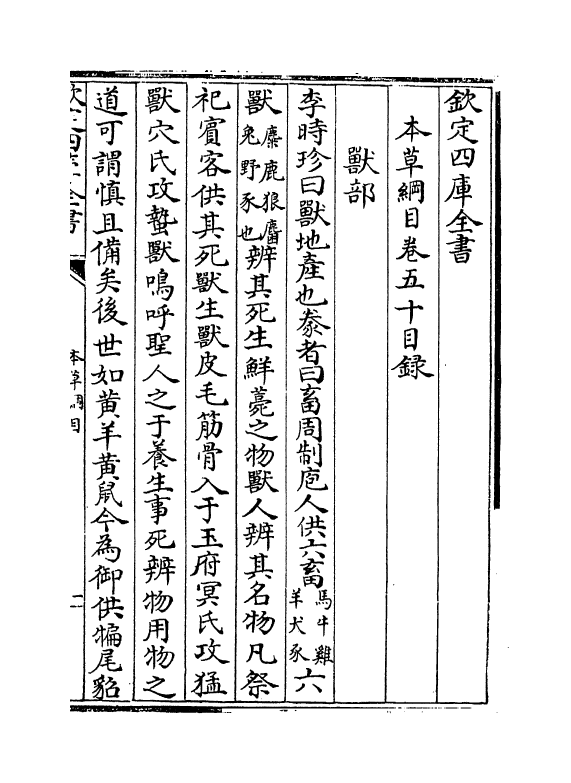 欽定四庫全書
本草綱目卷五十目錄
獸部
李時珍曰獸地產也豢者曰畜周制庖人供六畜馬牛雞羊犬豕六
獸麋鹿狼麕兔野豕也辨其死生鮮薧之物獸人辨其名物凡祭
祀賓客供其死獸生獸皮毛筋骨入于玉府冥氏攻猛
獸穴氏攻蟄獸嗚呼聖人之于養生事死辨物用物之
道可謂慎且備矣後世如黄羊黄鼠今為御供犏尾貂
欽定四庫全書
本草綱目